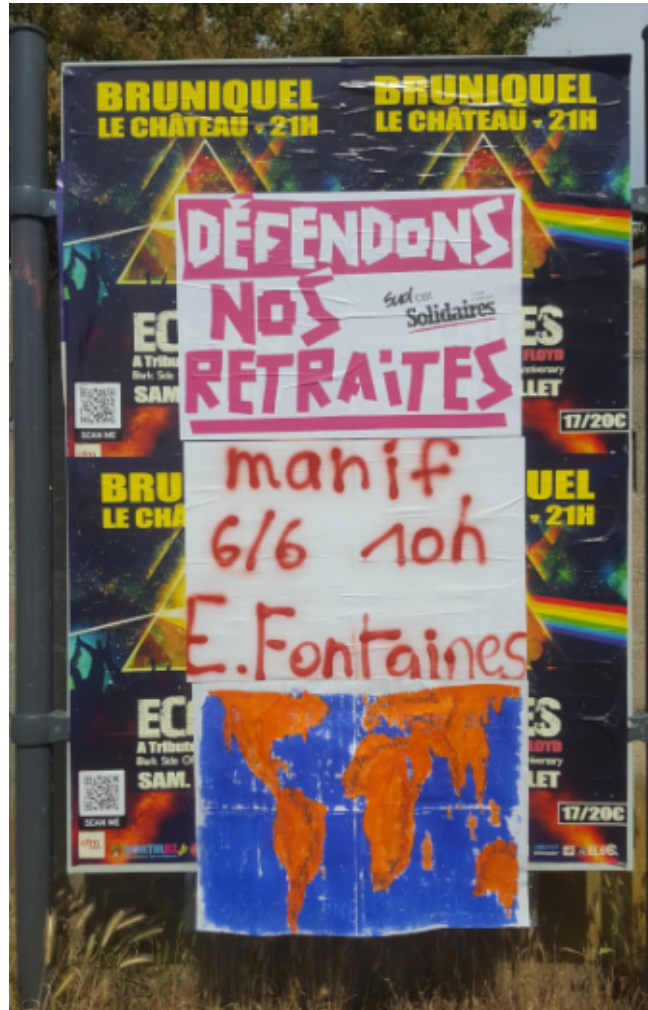 BRUNIQUEL
LE CHÂTEAU - 21H
BRUNIQUEL
LE CHÂTEAU - 21H
DÉFENDONS
NOS
RETRAITES
Sud
Solidaires
EC
A Tribu
Dark Side
SAM
SCAN ME
ES
FLOYD
LLET
17/20€
manif
6/6 10h
E.Fontaines
BRU
LE CHÂ
UEL
- 21H
EC
A Tribute
Dark Side Of
SAM.
SCAN ME
ES
LOYD
LET
17/20€